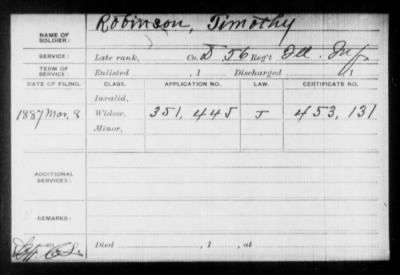 NAME OF SOLDIER: Robinson, Timothy
SERVICE: Late rank, Co. D 56 Reg't Ill. Inf.
TERM OF SERVICE: Enlisted , 1 Discharged , 1
DATE OF FILING. CLASS. APPLICATION NO. LAW. CERTIFICATE NO.
Invalid,
1887 Mar. 8 Widow, 351,445 J 453,131
Minor,
ADDITIONAL SERVICES:
REMARKS:
Died , 1 , at